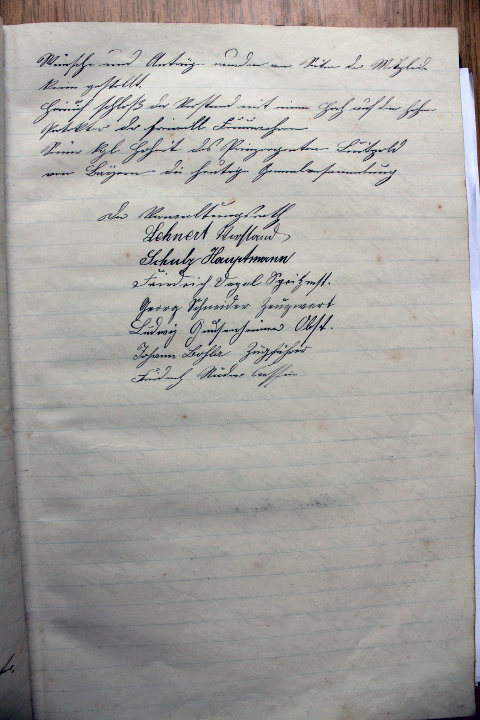 Wünsche und Anträge wurden von Seiten der Mitglieder
keine gestellt.
Hierauf schloß der Vorstand mit einem Hoch auf den hohen
Protektor der freiwill. Feuerwehren
Seine kgl. Hoheit des Prinzregenten Luitpold
von Bayern die heutige Generalversammlung
Der Verwaltungsrath
Lehnert Vorstand
Schulz Hauptmann
Friedrich Spritzmst.
Georg Schneider Zeugwart
Ludwig Obst.
Johann Bohler Zugführer
Friedrich